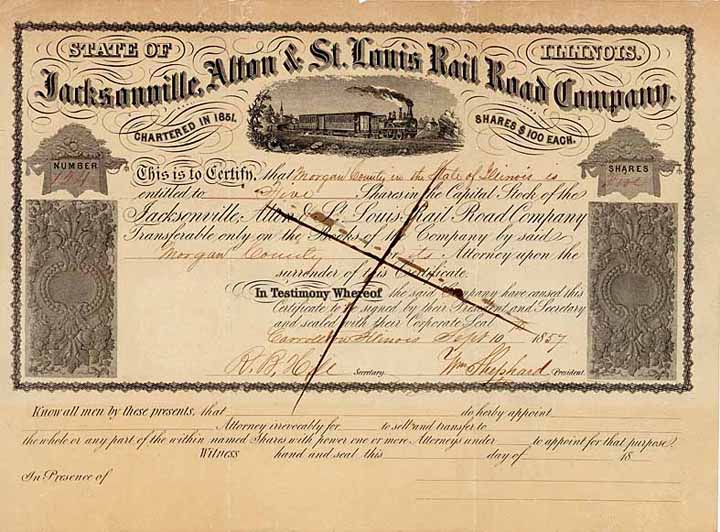 STATE OF ILLINOIS.
Jacksonville, Alton & St. Louis Rail Road Company.
CHARTERED IN 1851. SHARES $ 100 EACH.
NUMBER
SHARES
Five
This is to Certify, that Morgan County in the State of Illinois is
entitled to Five Shares in the Capital Stock of the
Jacksonville, Alton & St. Louis Rail Road Company
Transferable only on the Books of the Company by said
Morgan County or its Attorney upon the
surrender of this Certificate.
In Testimony Whereof the said Company have caused this
Certificate to be signed by their President and Secretary
and sealed with their Corporate Seal
Carrollton Illinois Sept. 10 1857
R. B. Hill Secretary Wm Shephard President.
Know all men by these presents, that do herby appoint
Attorney irrevocably for to sell and transfer to
the whole or any part of the within named Shares with power one or more Attorneys under to appoint for that purpose.
Witness hand and seal this day of 18
In Presence of